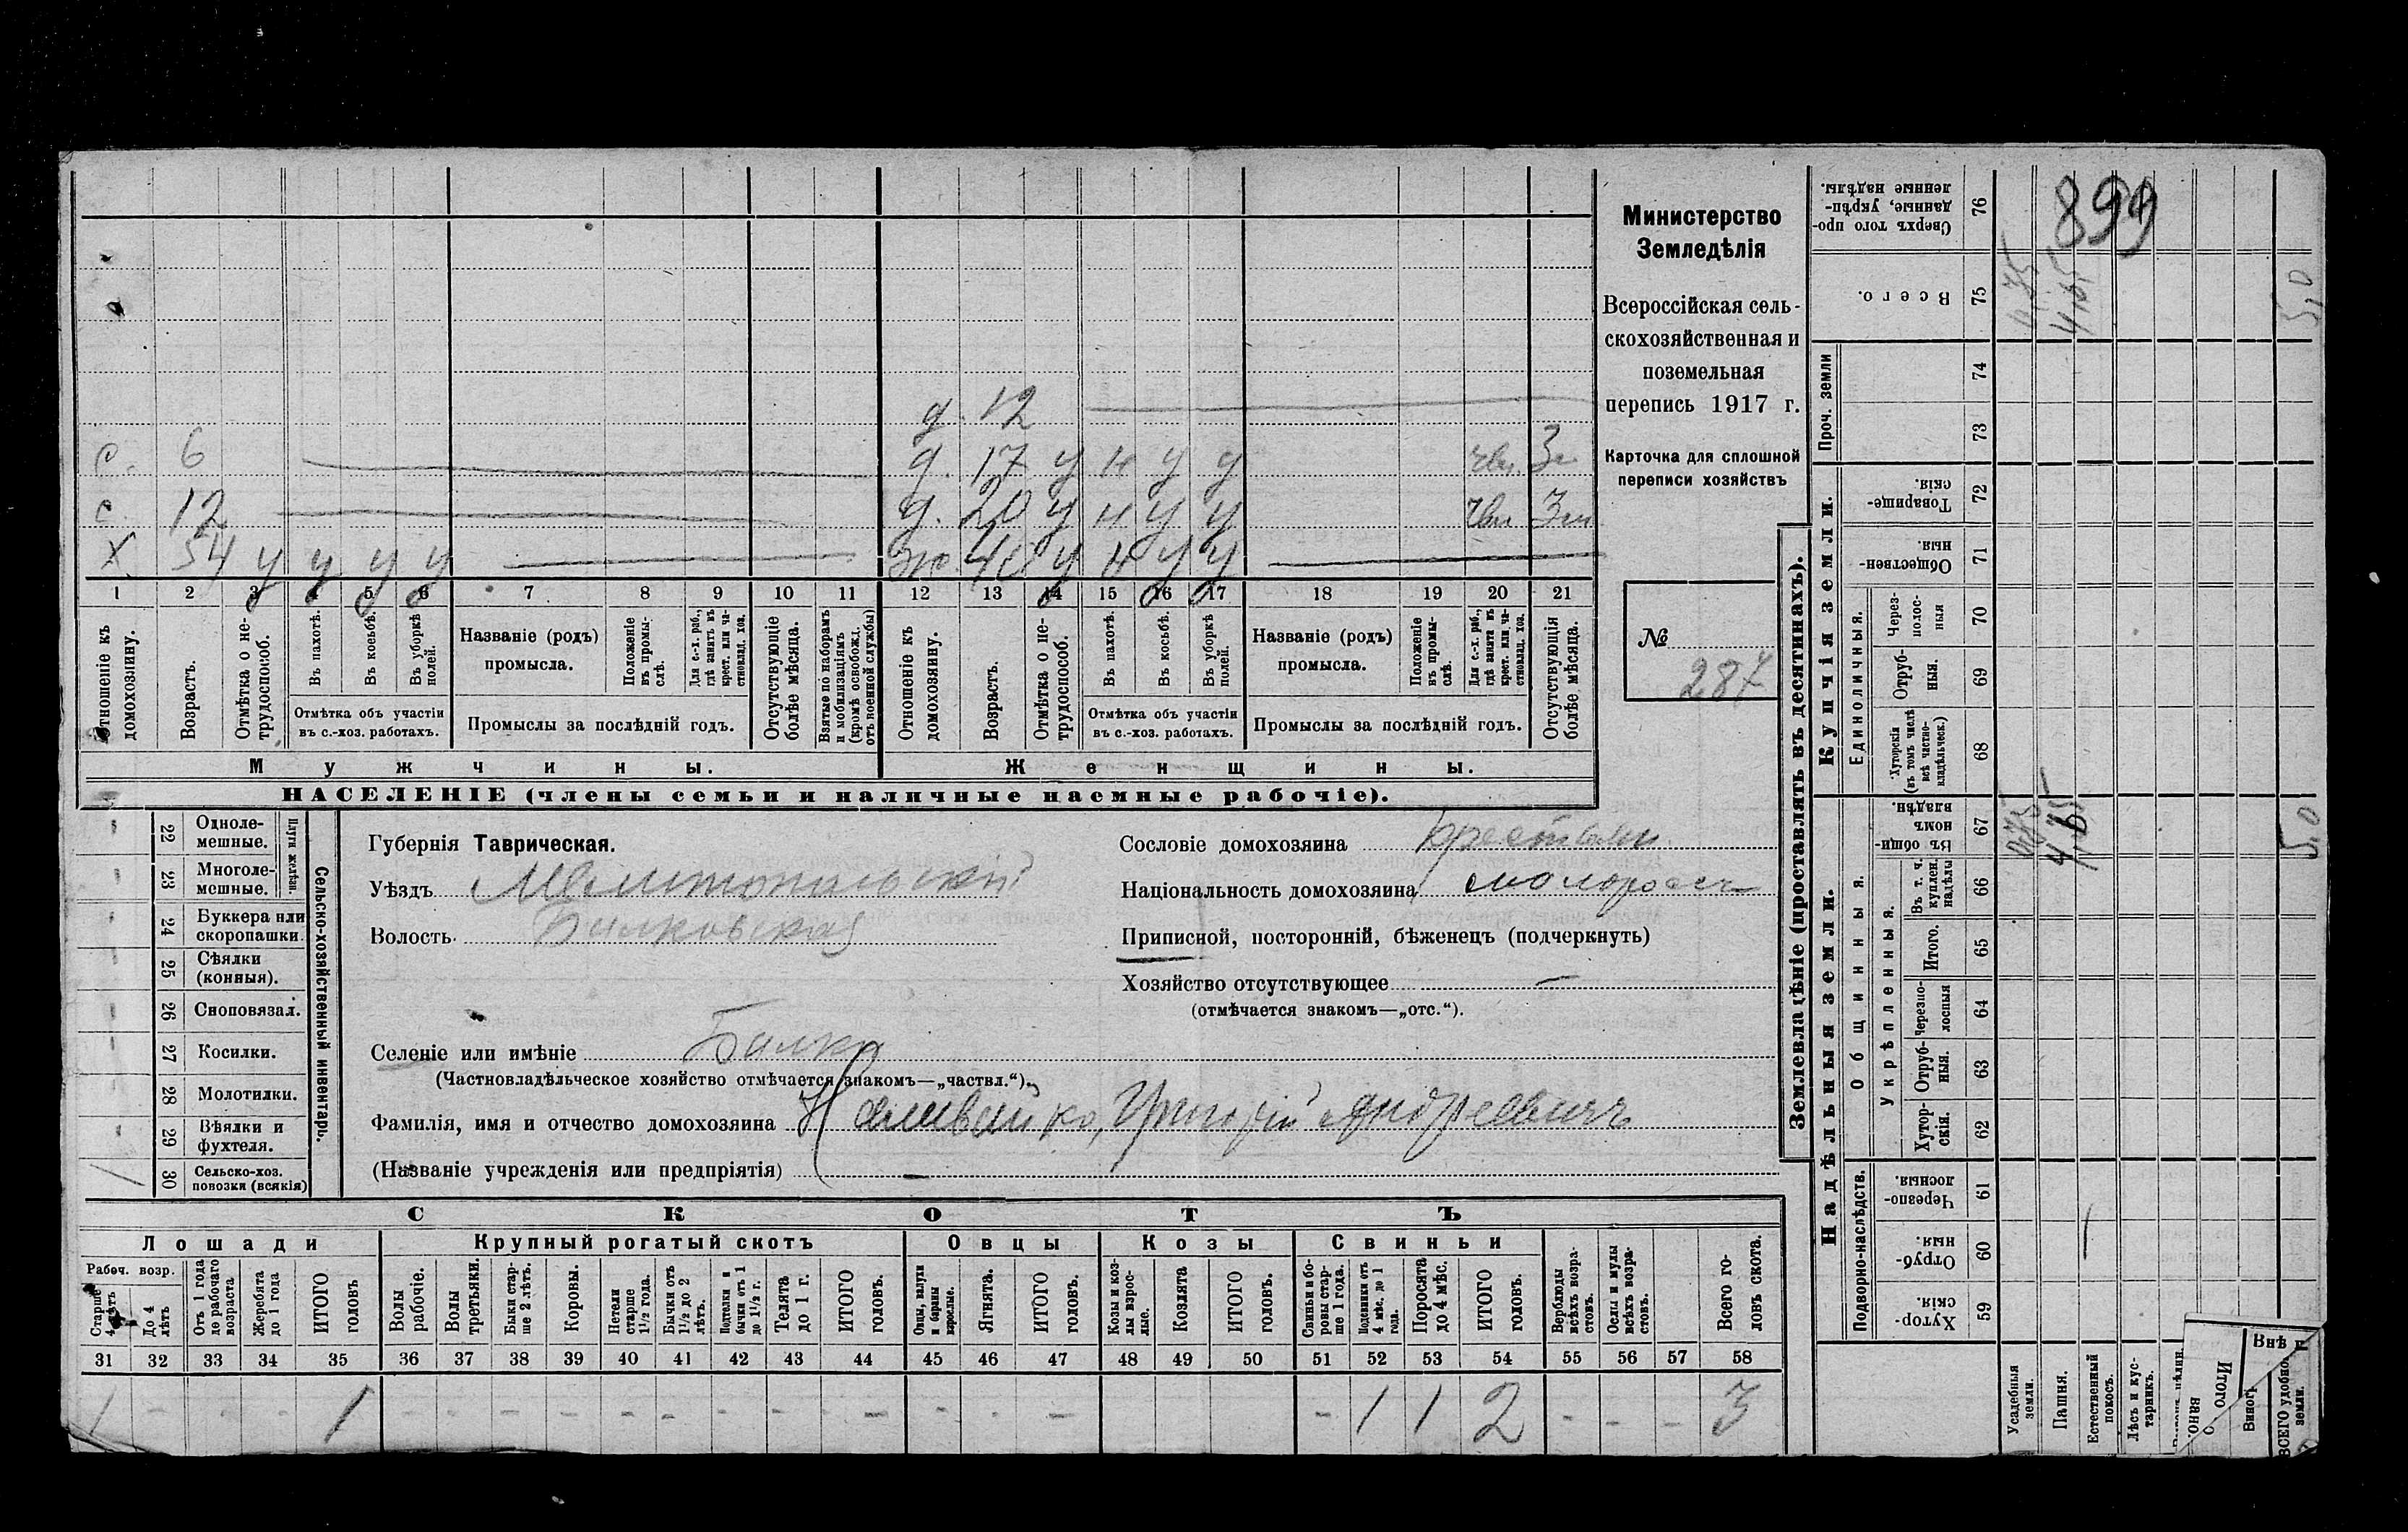 899
д. 12
с. 6 д. 17 у н у у 3
с. 12 д. 20 у н у у 3
х 54 у у у у ж 40 у н у у
1 2 3 4 5 6 7 8 9 10 11 12 13 14 15 16 17 18 19 20 21
Отношеніе къ домохозяину.
Возрастъ.
Отмѣтка о нетрудоспособ.
Въ пахотѣ.
Въ косьбѣ.
Въ уборкѣ полей.
Отмѣтка объ участіи въ с.-хоз. работахъ.
Названіе (родъ) промысла.
Положеніе въ промыслѣ.
Для с.-х. раб., гдѣ занятъ въ крест. или частновлад. хоз.
Промыслы за послѣдній годъ.
Отсутствующіе болѣе мѣсяца.
Взятые по наборамъ и мобилизаціямъ (кромѣ освобожд. отъ военной службы)
Отношеніе къ домохозяину.
Возрастъ.
Отмѣтка о нетрудоспособ.
Въ пахотѣ.
Въ косьбѣ.
Въ уборкѣ полей.
Отмѣтка объ участіи въ с.-хоз. работахъ.
Названіе (родъ) промысла.
Положеніе въ промыслѣ.
Для с.-х. раб., гдѣ занята въ крест. или частновлад. хоз.
Промыслы за послѣдній годъ.
Отсутствующія болѣе мѣсяца.
Мужчины.
Женщины.
НАСЕЛЕНІЕ (члены семьи и наличные наемные рабочіе).
Министерство
Земледѣлія
Всероссійская сель-
скохозяйственная и
поземельная
перепись 1917 г.
Карточка для сплошной
переписи хозяйствъ
№
287
Сельско-хозяйственный инвентарь.
Плуги желѣзн.
22 Однолемешные.
23 Многолемешные.
24 Буккера или скоропашки.
25 Сѣялки (конныя).
26 Сноповязал.
27 Косилки.
28 Молотилки.
29 Вѣялки и фухтеля.
30 Сельско-хоз. повозки (всякія)
1
Губернія Таврическая.
Уѣздъ Мелитопольскій
Волость Балковская
Сословіе домохозяина крестьян.
Національность домохозяина малороссъ
Приписной, посторонній, бѣженецъ (подчеркнуть)
Хозяйство отсутствующее —
(отмѣчается знакомъ—„отс.“).
Селеніе или имѣніе Балка
(Частновладѣльческое хозяйство отмѣчается знакомъ—„частвл.“).
Фамилія, имя и отчество домохозяина Наливайко, Григорій Андреевичъ
(Названіе учрежденія или предпріятія) —
СКОТЪ
Лошади Крупный рогатый скотъ Овцы Козы Свиньи
Рабоч. возр.
Старше 4 лѣтъ
До 4 лѣтъ
Отъ 1 года до рабочаго возраста
Жеребята до 1 года
ИТОГО головъ
Волы рабочіе.
Волы третьяки.
Быки старше 2 лѣтъ.
Коровы.
Нетели старше 1½ года.
Бычки отъ 1½ до 2 лѣтъ.
Подтелки и бычки отъ 1 до 1½ г.
Телята до 1 г.
ИТОГО головъ.
Овцы, валухи и бараны взрослые.
Ягнята.
ИТОГО головъ.
Козы и козлы взрослые.
Козлята
ИТОГО головъ.
Свиньи и боровы старше 1 года.
Подсвинки отъ 4 мѣс. до 1 года.
Поросята до 4 мѣс.
ИТОГО головъ.
Верблюды всѣхъ возрастовъ.
Ослы и мулы всѣхъ возрастовъ.
Всего головъ скота.
31 32 33 34 35 36 37 38 39 40 41 42 43 44 45 46 47 48 49 50 51 52 53 54 55 56 57 58
1 - - - 1 - - - - - - - - - - - - - 1 1 2 - - - 3
Землевладѣніе (проставлять въ десятинахъ).
Надѣльныя земли.
Купчія земли.
Проч. земли
Подворно-наслѣдств.
Общинныя.
Укрѣпленныя.
Единоличныя.
Сверхъ того проданные, укрѣпленные надѣлы. 76
Всего. 75
74
73
Товарищескія. 72
Общественныя. 71
Черезполосныя 70
Отрубныя. 69
Хуторскія (въ томъ числѣ всѣ частновладѣльческ.) 68
Въ общинномъ владѣн. 67
Въ т. ч. куплен. надѣлы 66
Итого. 65
Черезполосныя 64
Отрубныя. 63
Хуторскія. 62
Черезполосныя. 61
Отрубныя. 60
Хуторскія. 59
5,0
5,0
Усадебныя земли.
Пашня.
Естественный покосъ.
Лѣсъ и кустарникъ.
ИТОГО
Виногр
Внѣ
ВСЕГО удобной земли.